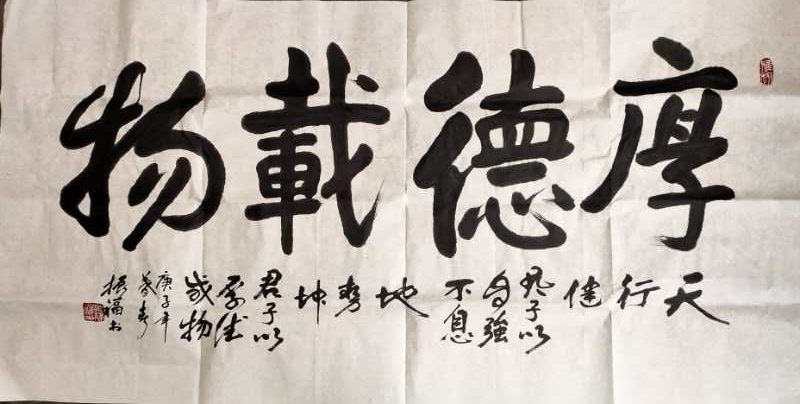 厚德載物
天
行
健
君子以
自強
不息
地
势
坤
君子以
厚德
载物
庚子年
暮春
振福书